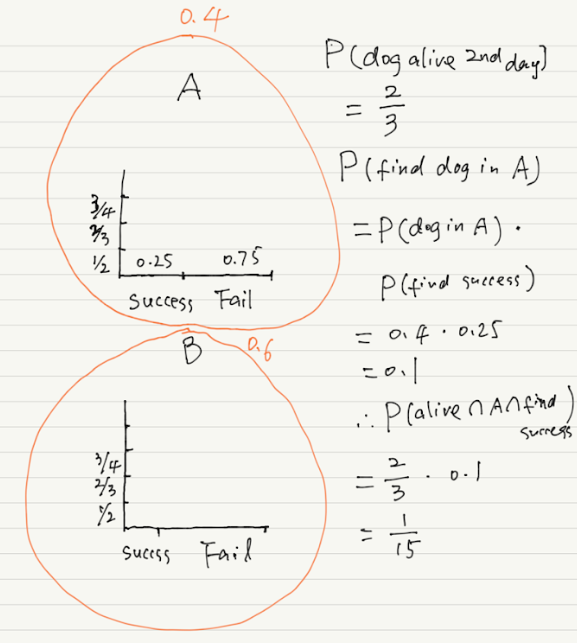 0.4
A
3/4
2/3
1/2
0.25 0.75
Success Fail
B
0.6
3/4
2/3
1/2
Success Fail
P(dog alive 2nd day)
= 2/3
P(find dog in A)
= P(dog in A) ·
P(find success)
= 0.4 · 0.25
= 0.1
∴ P(alive ∩ A ∩ find success)
= 2/3 · 0.1
= 1/15